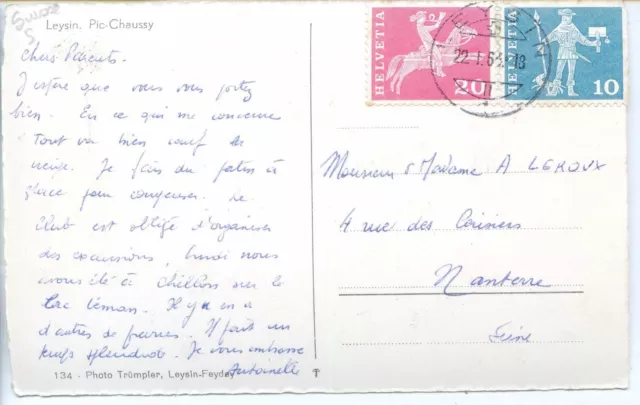 Suisse
5
Leysin. Pic-Chaussy
Chers Parents.
J'espère que vous vous portez
bien. En ce qui me concerne
tout va bien sauf la
neige. Je fais du patin à
glace pour compenser. Le
Club est obligé d'organiser
des excursions, lundi nous
avons été à chillon sur le
lac Léman. Il y en a
d'autres de prévues. Il fait un
temps splendide. Je vous embrasse
Antoinette
134 - Photo Trümpler, Leysin-Feydey
HELVETIA
20
HELVETIA
10
LEYSIN
22.1.64-18
Monsieur & Madame A LEROUX
4 rue des Cerisiers
Nanterre
Seine